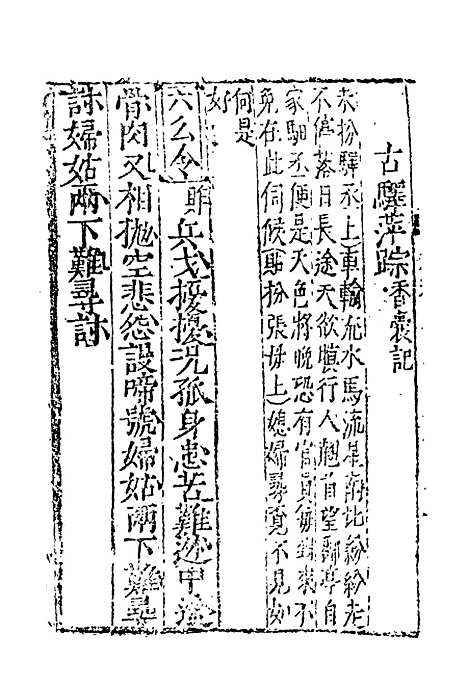 古驛萍踪·香囊記
末扮驛丞上車輪流水馬流星南北紛紛走
不停落日長途天欲暝行人翹首望郵亭自
家馹丞便是天色將晚恐有官員每來不
免在此伺候貼扮張母上媳婦尋覓不見如
何是
好
六么令 兵戈擾攘况孤身患苦難逃中途
骨肉又相抛空悲怨設啼號婦姑兩下難尋
討婦姑兩下難尋討